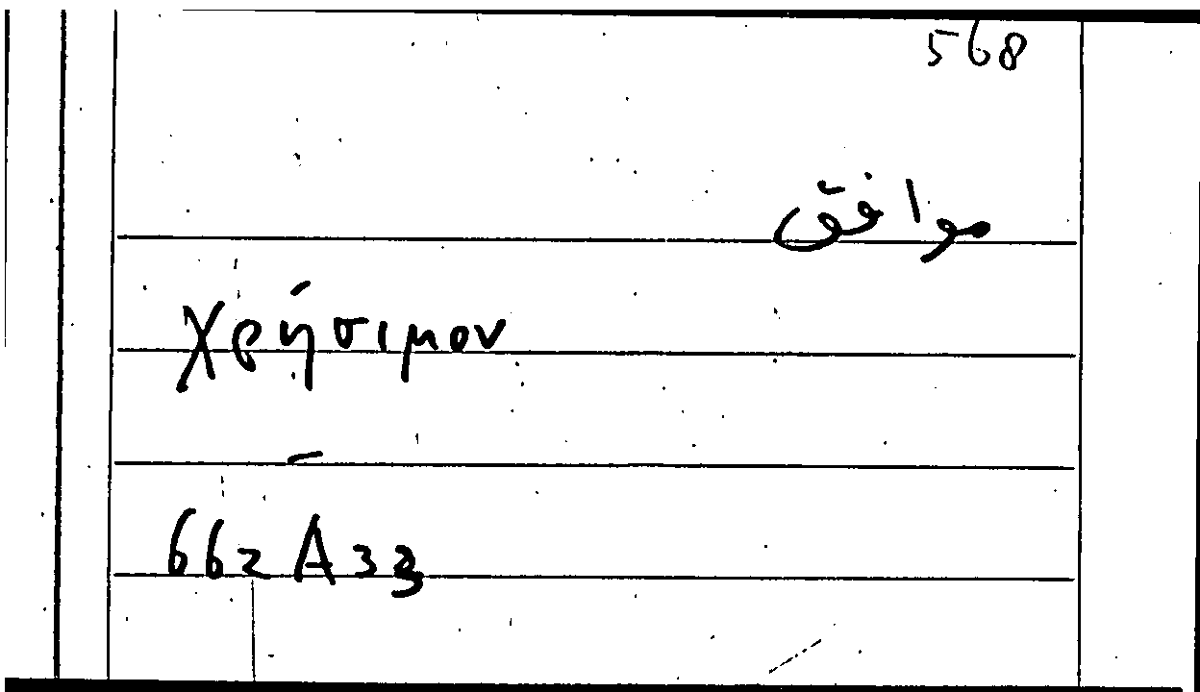 568
موافق
χρήσιμον
662 A 33